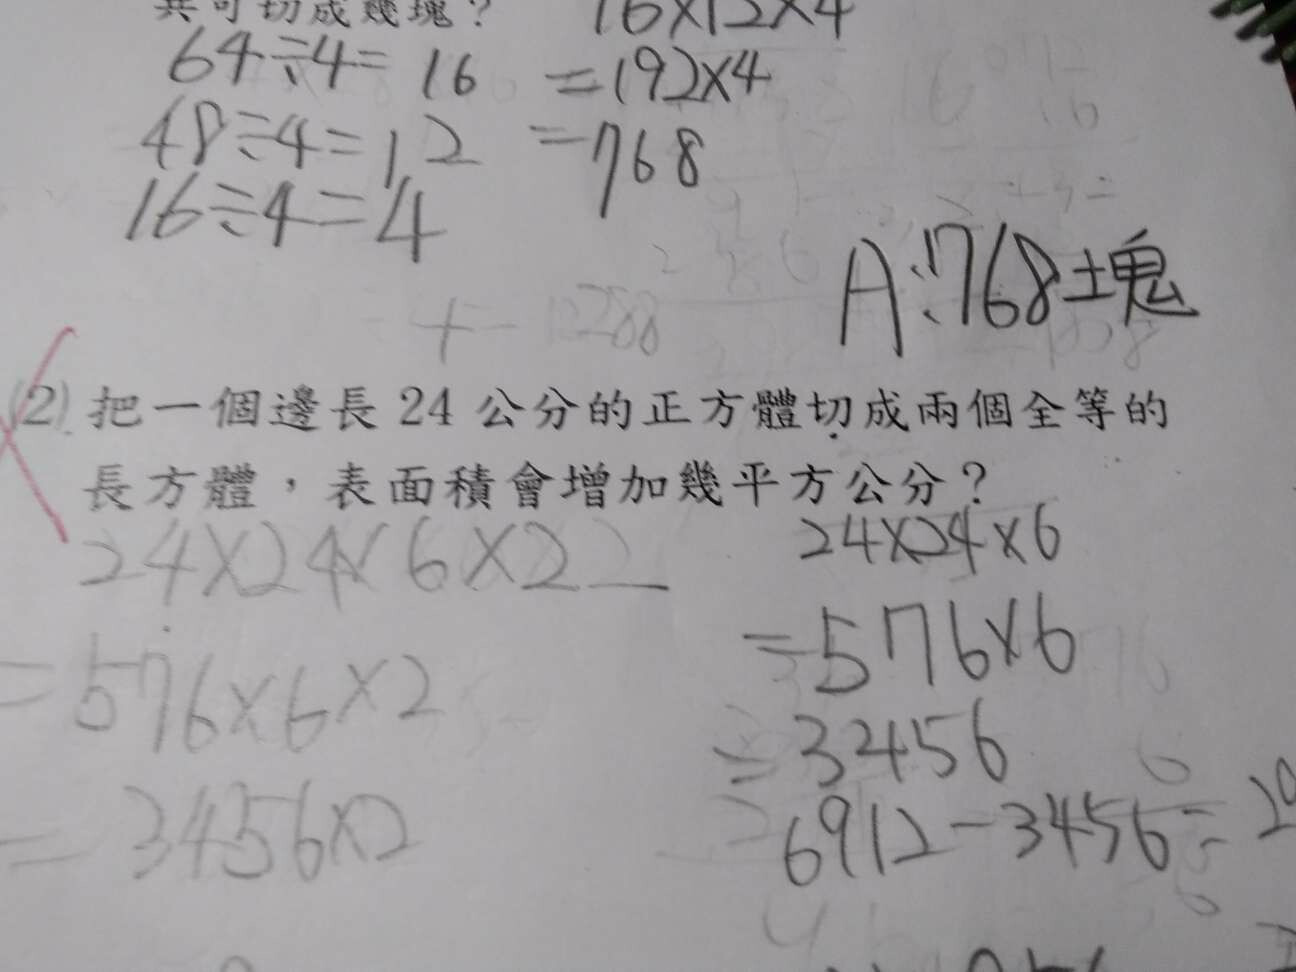 共可切成幾塊？ 16×12×4
64÷4= 16 =192×4
48÷4=12 =768
16÷4=4
A:768塊
(2) 把一個邊長 24 公分的正方體切成兩個全等的
長方體，表面積會增加幾平方公分？
24×24×6×2 24×24×6
=576×6×2 =576×6
=3456×2 =32456
6912-3456=